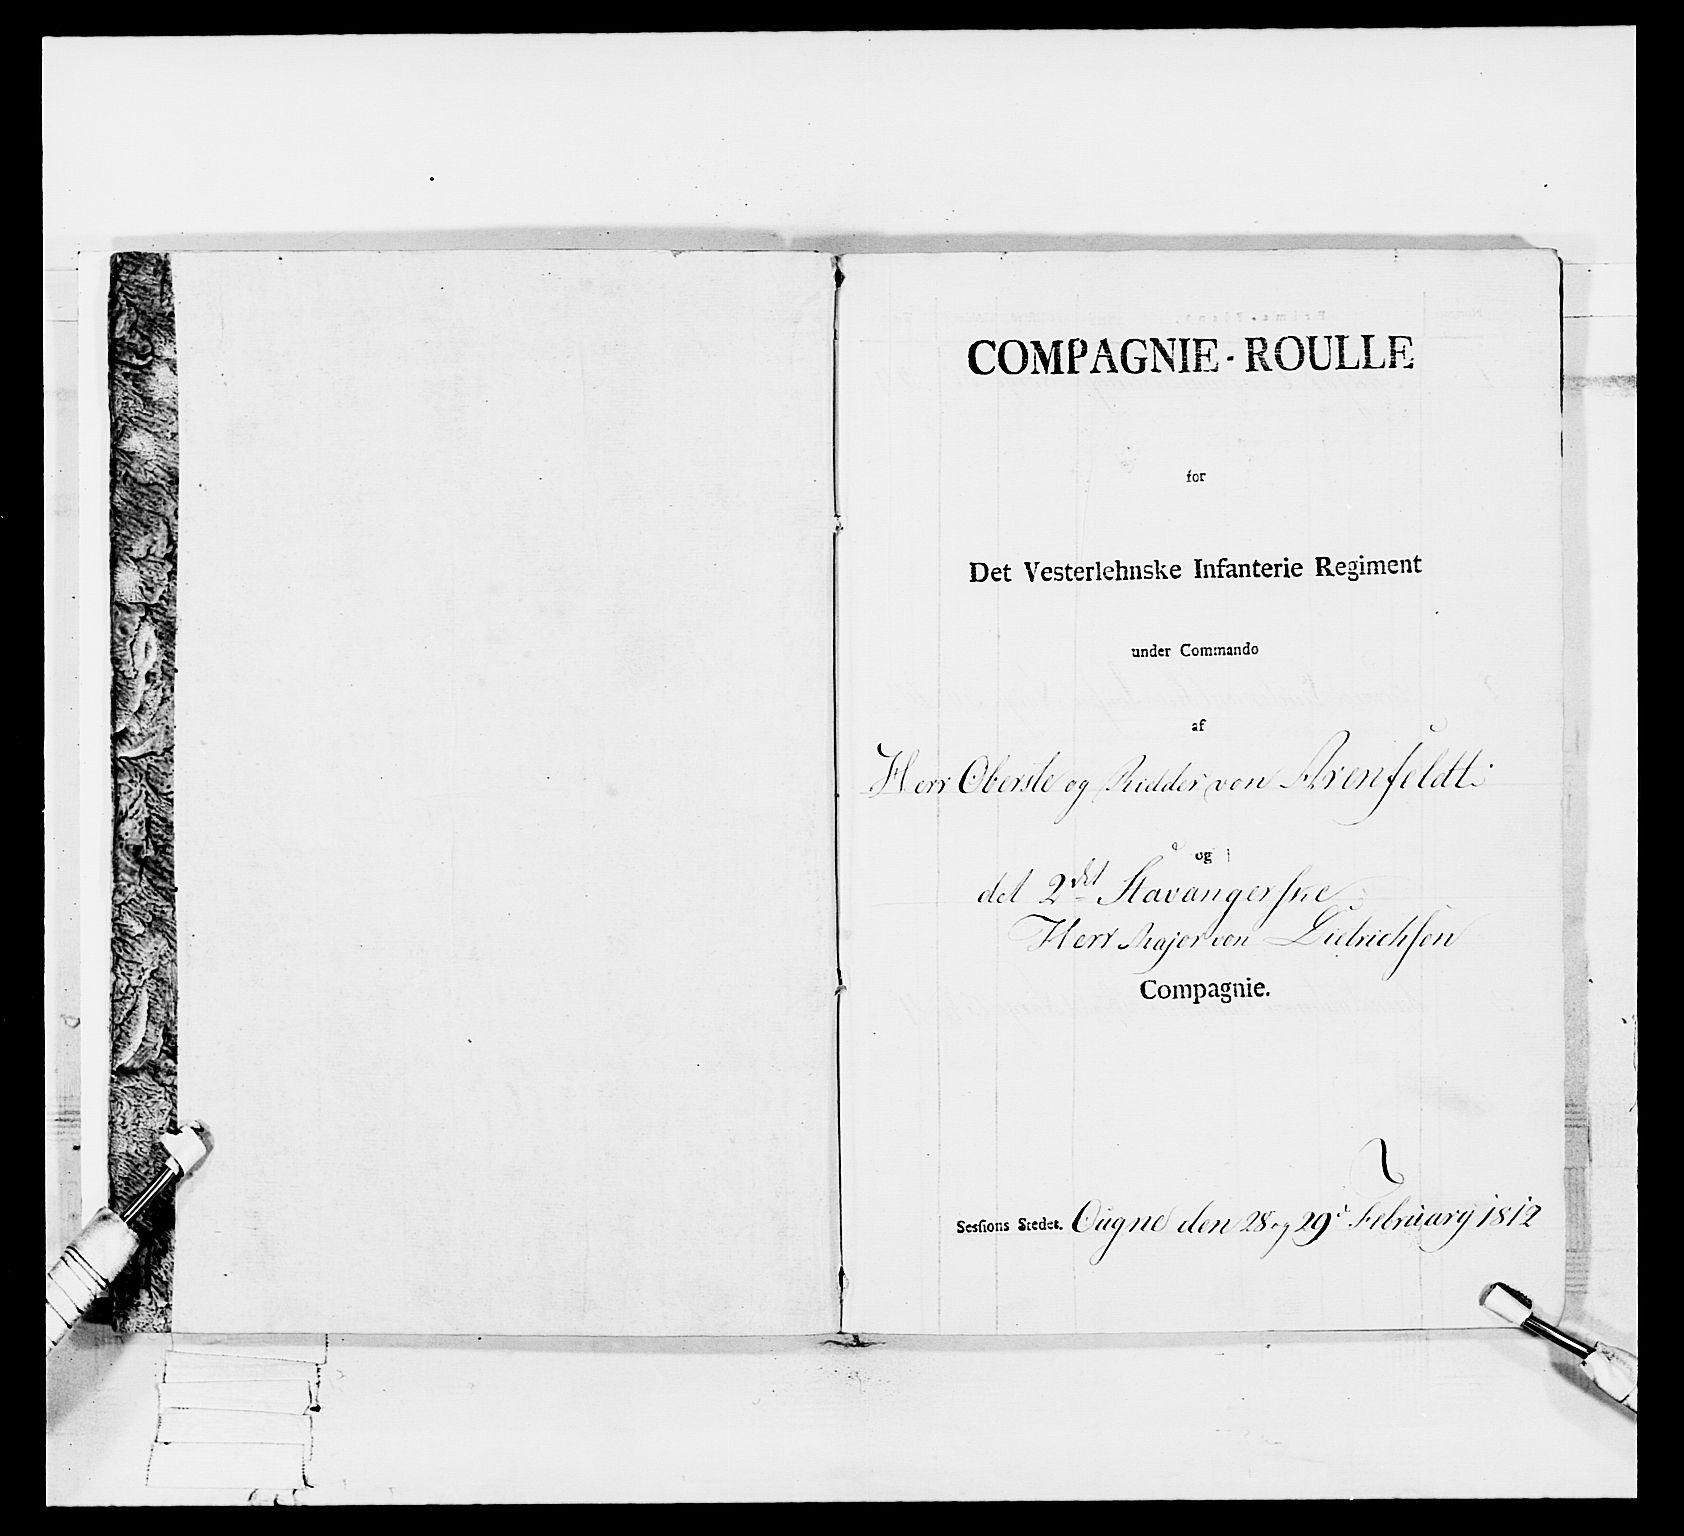 COMPAGNIE-ROULLE
for
Det Vesterlehnske Infanterie Regiment
under Commando
af
Herr Oberste og Ridder von Arenfeldt
og
det 2det Stavangerske
Herr Major von Dietrichson
Compagnie.
Sessions Stedet. Ougne den 28 og 29d February 1812